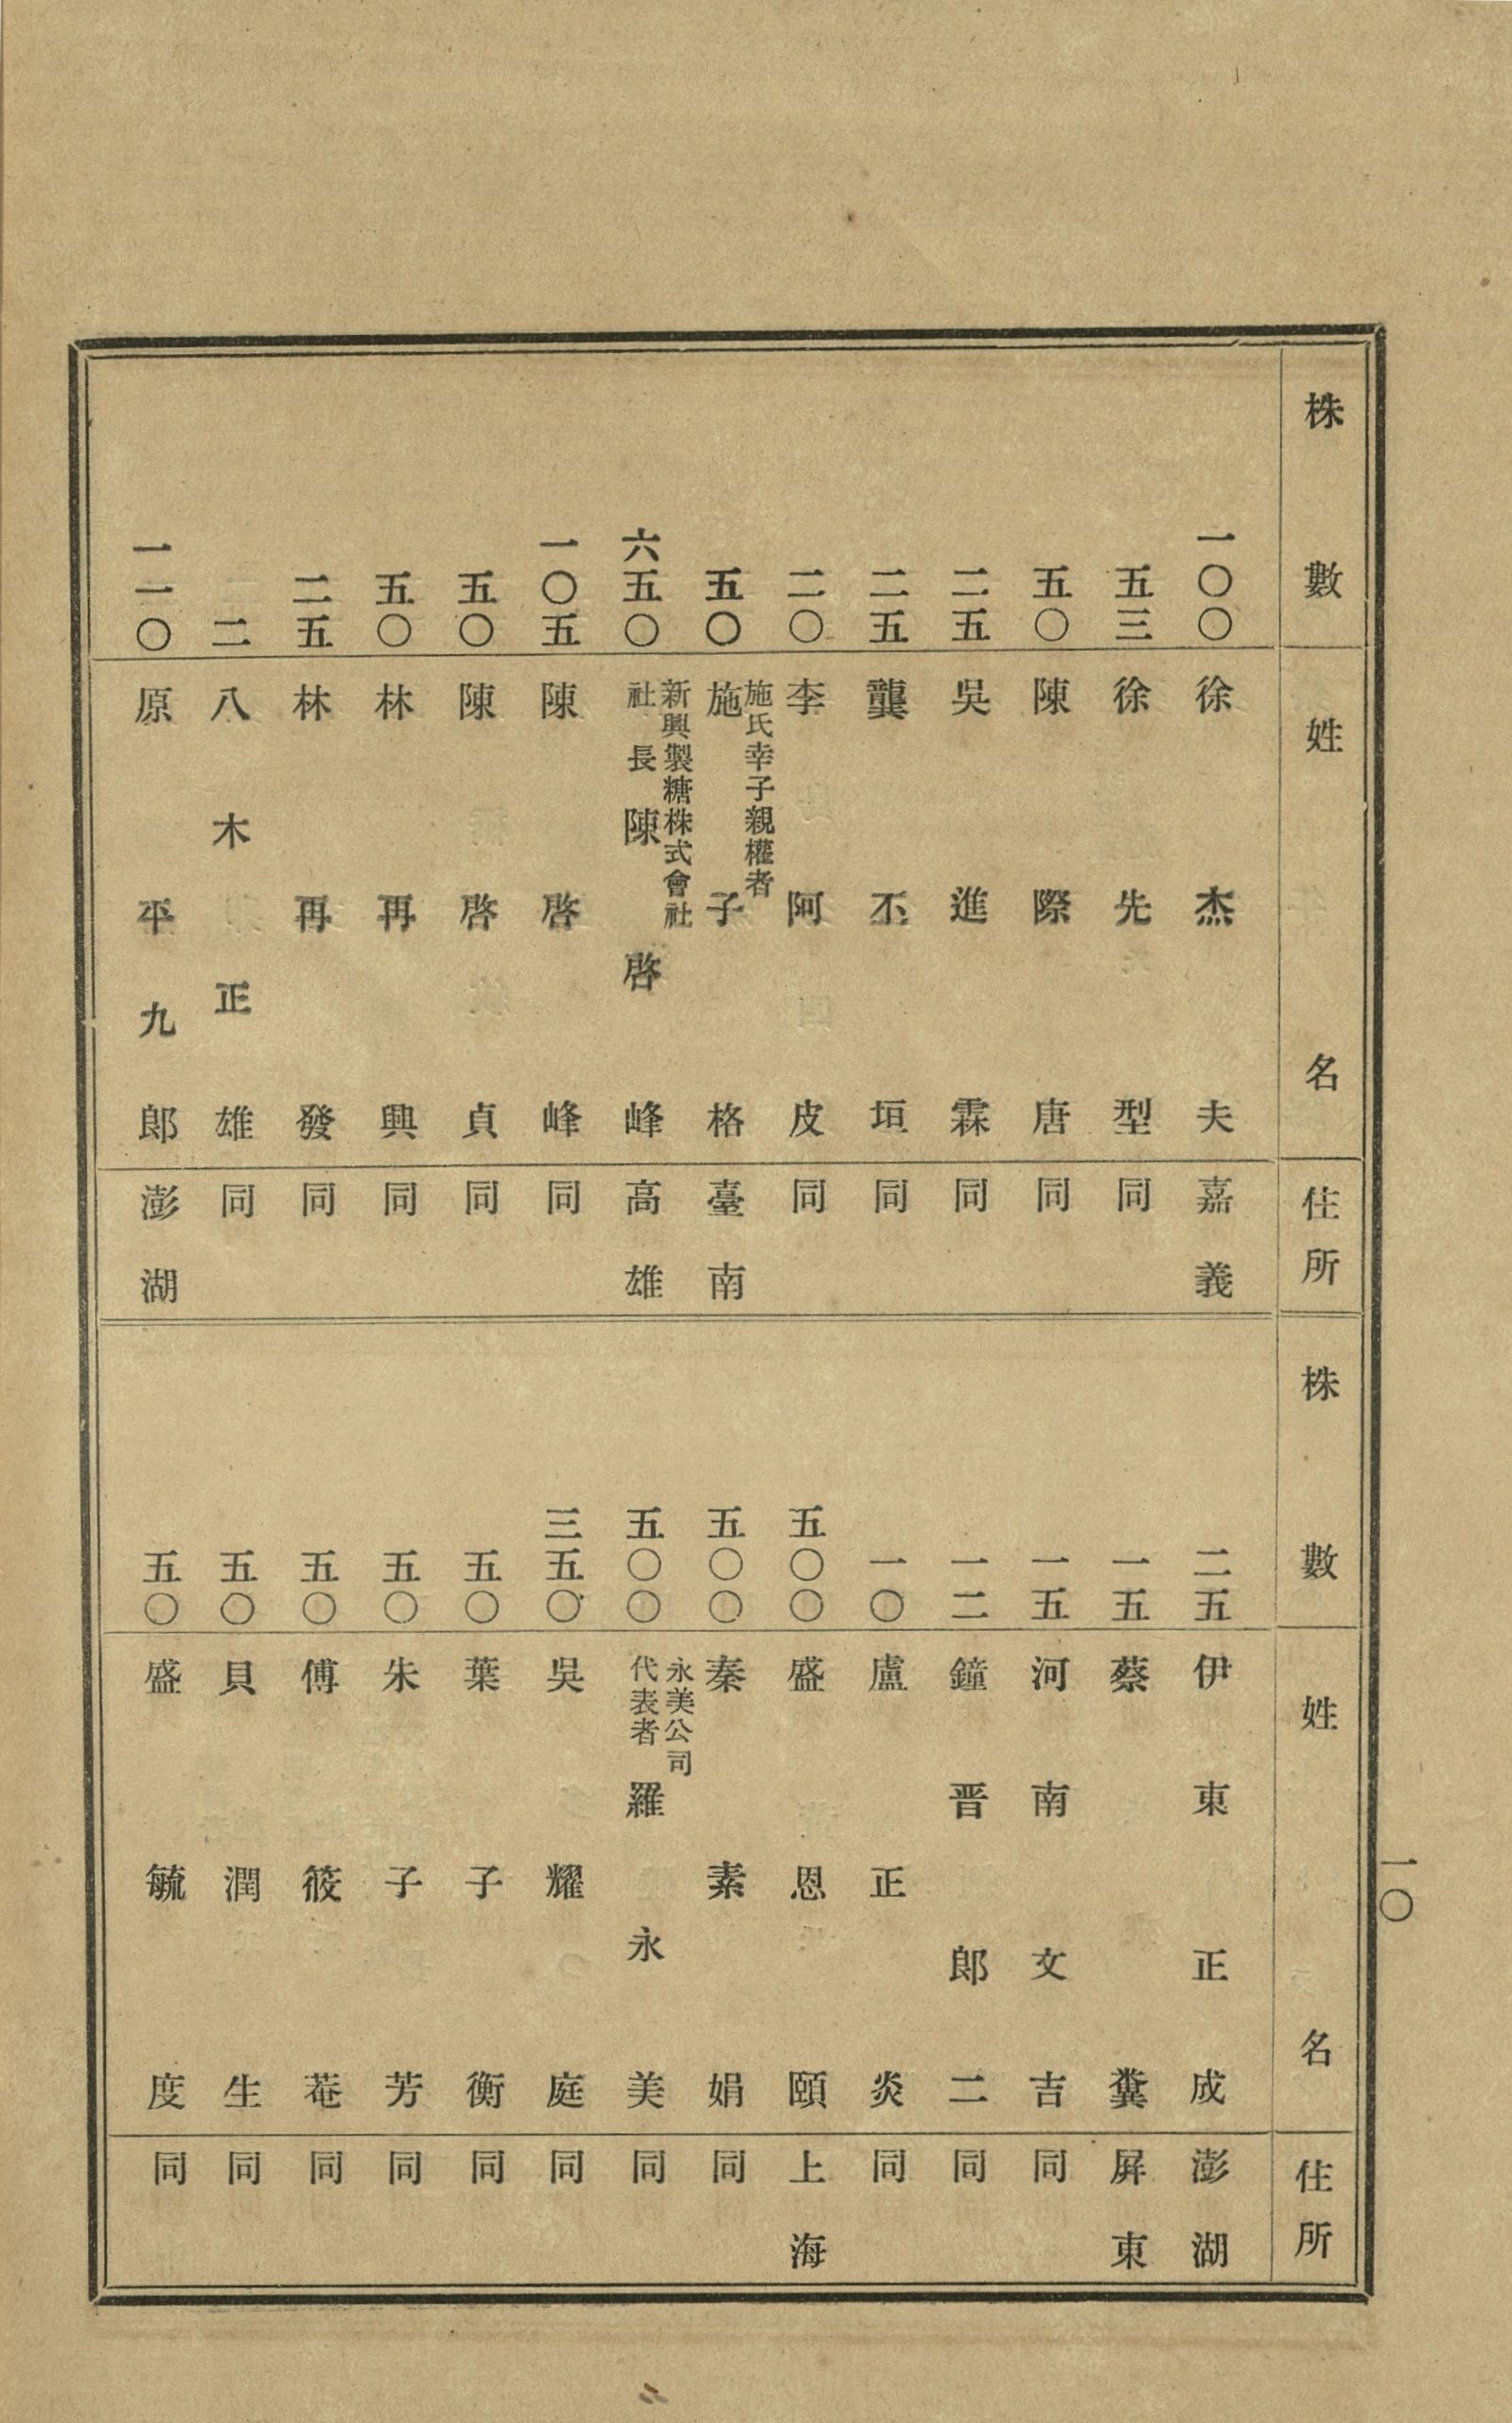 株數 姓名 住所
一〇〇 徐杰夫 嘉義
五三 徐先型 同
五〇 陳際唐 同
二五 吳進霖 同
二五 龔丕垣 同
二〇 李阿皮 同
五〇 施氏幸子親權者 施子格 臺南
六五〇 新興製糖株式會社 社長 陳啓峰 高雄
一〇五 陳啓峰 同
五〇 陳啓貞 同
五〇 林再興 同
二五 林再發 同
二 八木正雄 同
一一〇 原平九郎 澎湖
株數 姓名 住所
二五 伊東正成 澎湖
一五 蔡糞 屏東
一五 河南文吉 同
一二 鐘晋郎二 同
一〇 盧正炎 同
五〇〇 盛恩頤 上海
五〇〇 秦素娟 同
五〇〇 永美公司 代表者 羅永美 同
三五〇 吳耀庭 同
五〇 葉子衡 同
五〇 朱子芳 同
五〇 傅筱菴 同
五〇 貝潤生 同
五〇 盛毓度 同
一〇